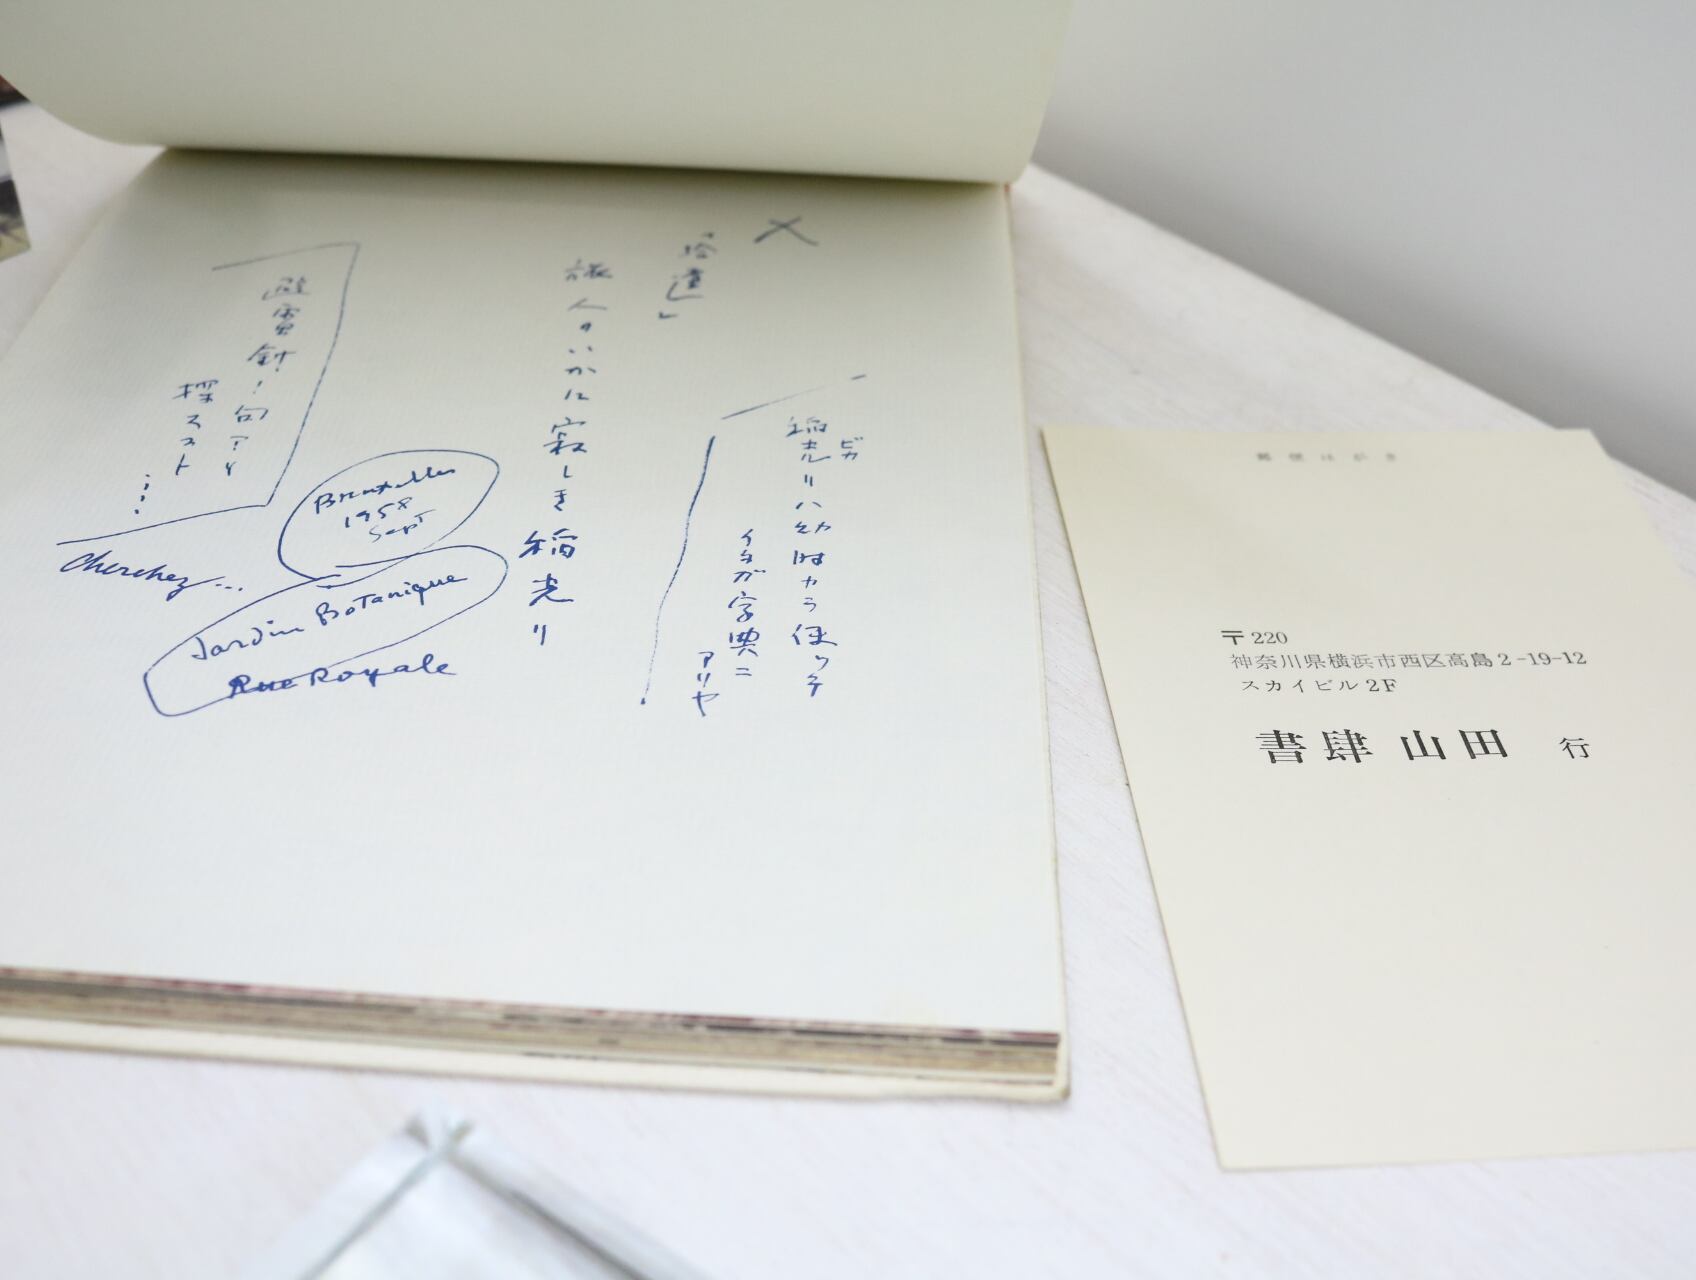 「拾遺」
稲光リハ幼時カラ使ッテ
ビカ
イタガ字典ニ
アリヤ
旅人のいかに寂しき稲光り
避雷針！句アリ
探スト……
Bruxelles
1958
Sept
Cherchez...
Jardin Botanique
Rue Royale
郵便はがき
〒220
神奈川県横浜市西区高島2-19-12
スカイビル2F
書肆 山田 行